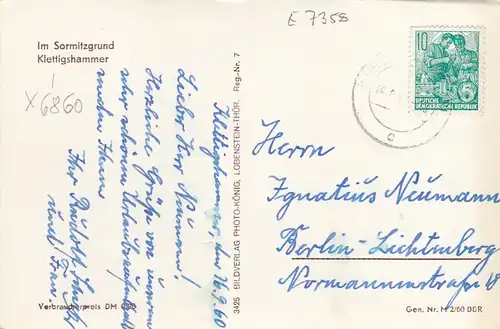 E 7358
Im Sormitzgrund
Klettigshammer
X6860
Klettigshammer, den 16.9.60
Lieber Herr
Herzliche Grüße von unserem
sehr schönen Urlaubsaufenthalt
senden Ihnen
Ihr Rudolf
und Frau
Verbraucherpreis DM
3495 BILDVERLAG PHOTO-KÖNIG, LOBENSTEIN-THÜR. Reg.-Nr. 7
10
DEUTSCHE
DEMOKRATISCHE REPUBLIK
Herrn
Ignatius Neumann
Berlin-Lichtenberg
Normannenstraße
Gen. Nr. M 2/60 DDR